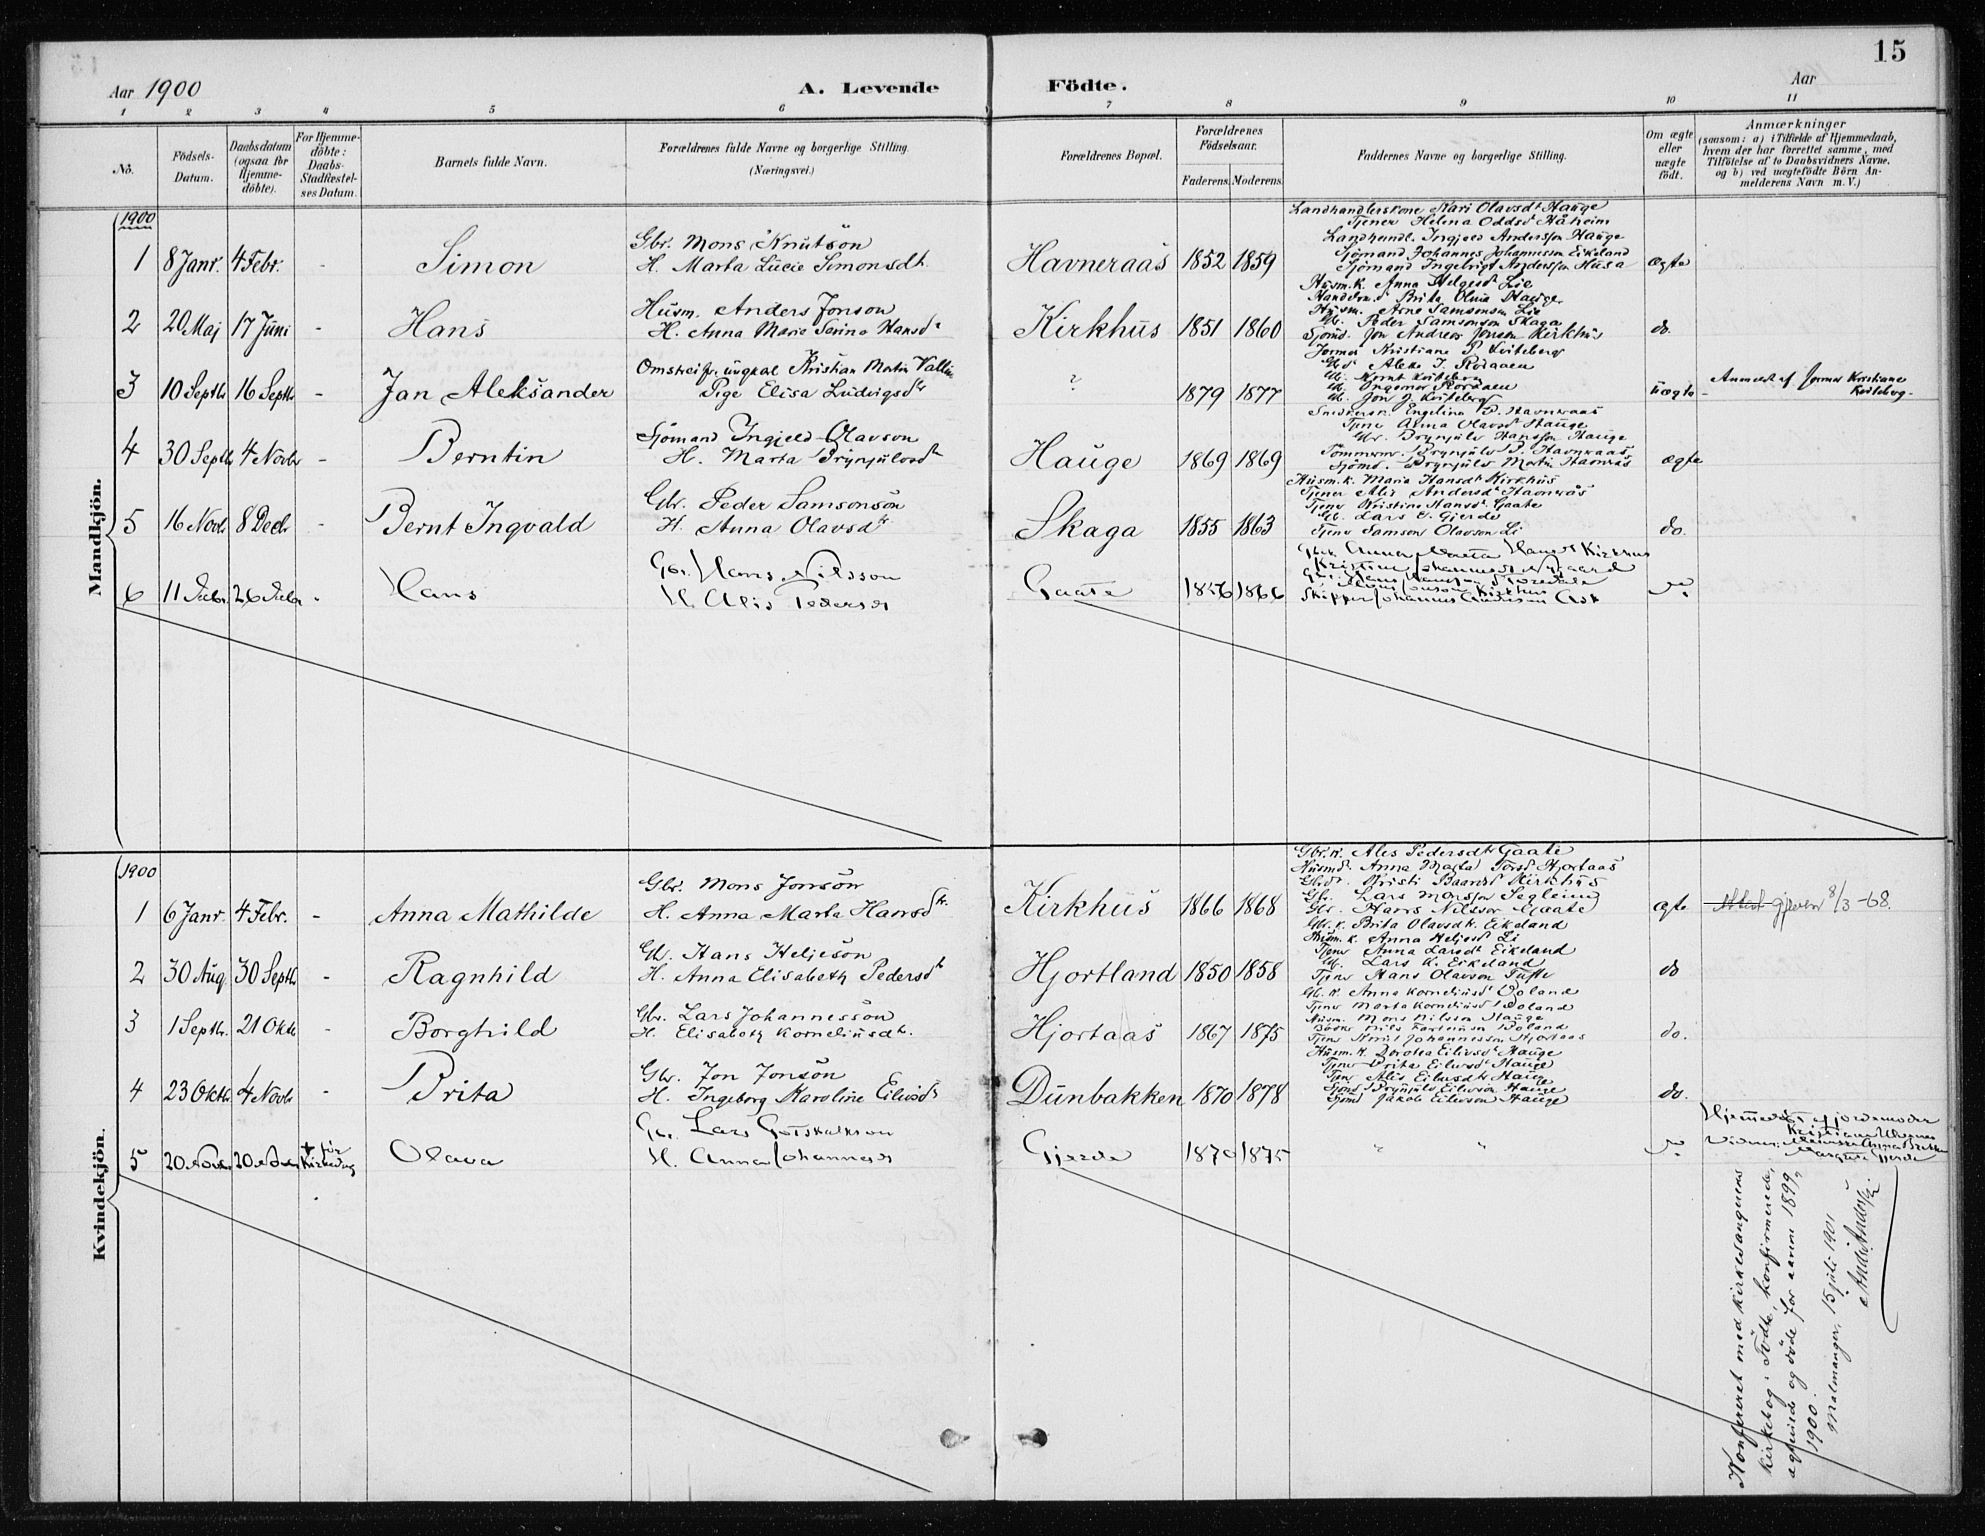 15
Aar 1900 A. Levende Födte. Aar
1 2 3 4 5 6 7 8 9 10 11
No.
Födsels-Datum.
Daabsdatum (ogsaa for Hjemme-döbte).
For Hjemme-döbte: Daabs-Stadfæstel-ses Datum.
Barnets fulde Navn.
Forældrenes fulde Navne og borgerlige Stilling.
(Næringsvei.)
Forældrenes Bopæl.
Forældrenes Födselsaar.
Faderens. Moderens.
Faddernes Navne og borgerlige Stilling.
Om ægte eller uægte födt.
Anmærkninger
(saasom: a) i Tilfælde af Hjemmedaab,
hvem der har forrettet samme, med
Tilföielse af to Daabsvidners Navne.
og b) ved uægtefödte Börn An-
melderens Navn m. V.)
Mandkjön.
1900
1 8 Janr. 4 Febr. - Simon
Gbr. Mons Knutsön
H. Marta Lucie Simonsdt.
Havneraas 1852 1859
Landhandlerskone Kari Olavsdt Hauge
Tjener Helena Oddsdt Håheim
Landhandl. Ingjeld Andersson Hauge
Sjömand Johannes Johannesson Eikeland
Sjömand Ingebrigt Andersson Husa
ægte
2 20 Maj 17 Juni - Hans
Husm. Anders Jonson
H. Anna Maria Serina Hansdt
Kirkhus 1851 1860
Husm.k. Anna Helgesdt Lie
Brita Olina Hauge
Husm. Arne Samsonson Lie
Gbr. Peder Samsonson Skaga
Sjömd. Jon Andreas Jonson Kirkhus
do.
3 10 Septb. 16 Septb. - Jan Aleksander
Omstreifr. ungkal Kristian Martin Vallin
Pige Elisa Ludvigsdtr
? 1879 1877
Jormor Kristiane P. Kviteberg
Jon J. Kviteberg
uægte
Anmeldt af Jormor Kristiane Kviteberg.
4 30 Septb. 4 Novb. - Berntin
Sjömand Ingjeld Olavson
H. Marta Brynjulvsdt
Hauge 1869 1869
Engelina P. Havnraas
Tjener Anna Olavsdt Hauge
Gbr. Brynjulv Hansson Hauge
Tömmerm. Brynjulv P. Havnraas
Sjömd. Brynjulv Martin Havnrås
ægte
5 16 Novb. 8 Decb. - Bernt Ingvald
Gbr. Peder Samsonsön
H. Anna Olavsdtr
Skaga 1855 1863
Husm.k. Maria Hansdt Kirkhus
Tjener Alis Andersdt Havnrås
Tjener Kristina Hansdt Gaate
Gb. Lars G. Gjerde
Tjener Samson Olavson Li
do.
6 11 Decbr. 26 Decbr. - Hans
Gbr. Hans Nilsson
H. Alis Pedersdt
Gaate 1856 1866
Anna Marta Hansdt Kirkhus
Skipper Johannes Andersson Ask
do.
Kvindekjön.
1900
1 6 Janr. 4 Febr. - Anna Mathilde
Gbr. Mons Jonsön
H. Anna Marta Hansdtr.
Kirkhus 1866 1868
Gbr.k. Ales Pedersdt Gaate
Husmd. Anna Marta Torsdt Hjortaas
Kristi Baardsdt Kirkhus
Gbr. Lars Monsson Segleim
Gbr. Hans Nilsson Gaate
ægte
Attest gjeven 8/3-68.
2 30 Aug. 30 Septb. - Ragnhild
Gb. Hans Heljesön
H. Anna Elisabeth Pedersdt
Hjortland 1850 1858
Gbr.k. Brita Olavsdt. Eikeland
Husm.k. Anna Heljesdt Li
Tjener Anna Larsdt Eikeland
Gb. Lars K. Eikeland
Tjener Hans Olavson Tufte
do
3 1 Septb. 21 Oktb. - Borghild
Gbr. Lars Johannessön
H. Elisabeth Korneliusdt.
Hjortaas 1867 1875
Gb.k. Anna Korneliusdt Voland
Tjener Marta Korneliusdt Voland
Husm. Mons Nilsson Hauge
Tjener Knut Johannesson Hjortaas
do.
4 23 Oktb. 4 Novb - Brita
Gbr. Jon Jonsön
H. Ingeborg Karoline Eilivsdt
Dunbakken 1870 1878
Husm.k. Dorotea Eilivsdt Hauge
Tjener Brita Eilivsdt Hauge
Tjener Alis Eilivsdt Hauge
Sjömd Brynjulv Eilivson Hauge
Sjömd Jakob Eilivson Hauge
do.
5 20 Novb. 20 Novb. + før Kirkedag Olava
Gbr. Lars Gotskalkson
H. Anna Johannesdt
Gjerde 1870 1875
" "
do.
Hjemmedöbt af jordemoder
Kristiane
Margrete Gjerde
Konfereret med kirkesangerens
kirkebog: Födte, konfirmerede,
ægteviede og döde for aarene 1899,
1900.
Malmanger, 15 juli 1901